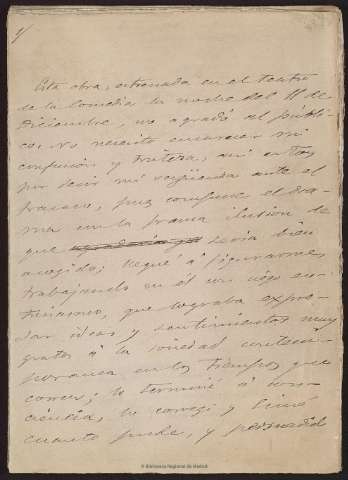 1/
Esta obra, estrenada en el teatro
de la Comedia la noche del 11 de
Diciembre, no agradó al públi-
co. No necesito encarecer mi
confusión y tristeza, casi estoy
por decir mi vergüenza ante el
fracaso, pues compuse el dra-
ma en la firme ilusión de
que sería bien
acogido; llegué á figurarme,
trabajando en él con ciego en-
tusiasmo, que lograba expre-
sar ideas y sentimientos muy
gratos á la sociedad contem-
poranea en los tiempos que
corren; lo terminé á con-
ciencia, lo corregí y limé
cuanto pude, y
© Biblioteca Regional de Madrid